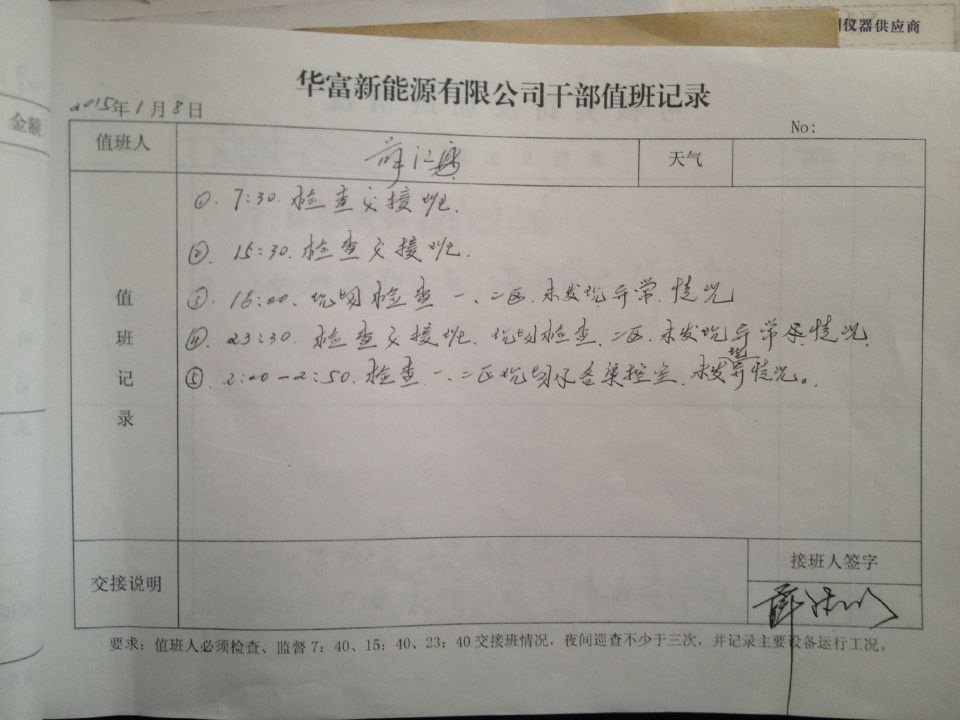 仪器供应商
金额
华富新能源有限公司干部值班记录
2015年1月8日
No:
值班人
薛江
天气
值班记录
①. 7:30. 检查交接班.
②. 15:30. 检查交接班.
③. 16:00. 现场检查一、二区. 未发现异常. 情况
④. 23:30. 检查交接班. 现场检查. 二区. 未发现异常 情况.
⑤. 2:00-2:50. 检查一、二区现场及各集控室. 未发现异情况。
交接说明
接班人签字
薛
要求: 值班人必须检查、监督7: 40、15: 40、23: 40交接班情况, 夜间巡查不少于三次, 并记录主要设备运行工况。